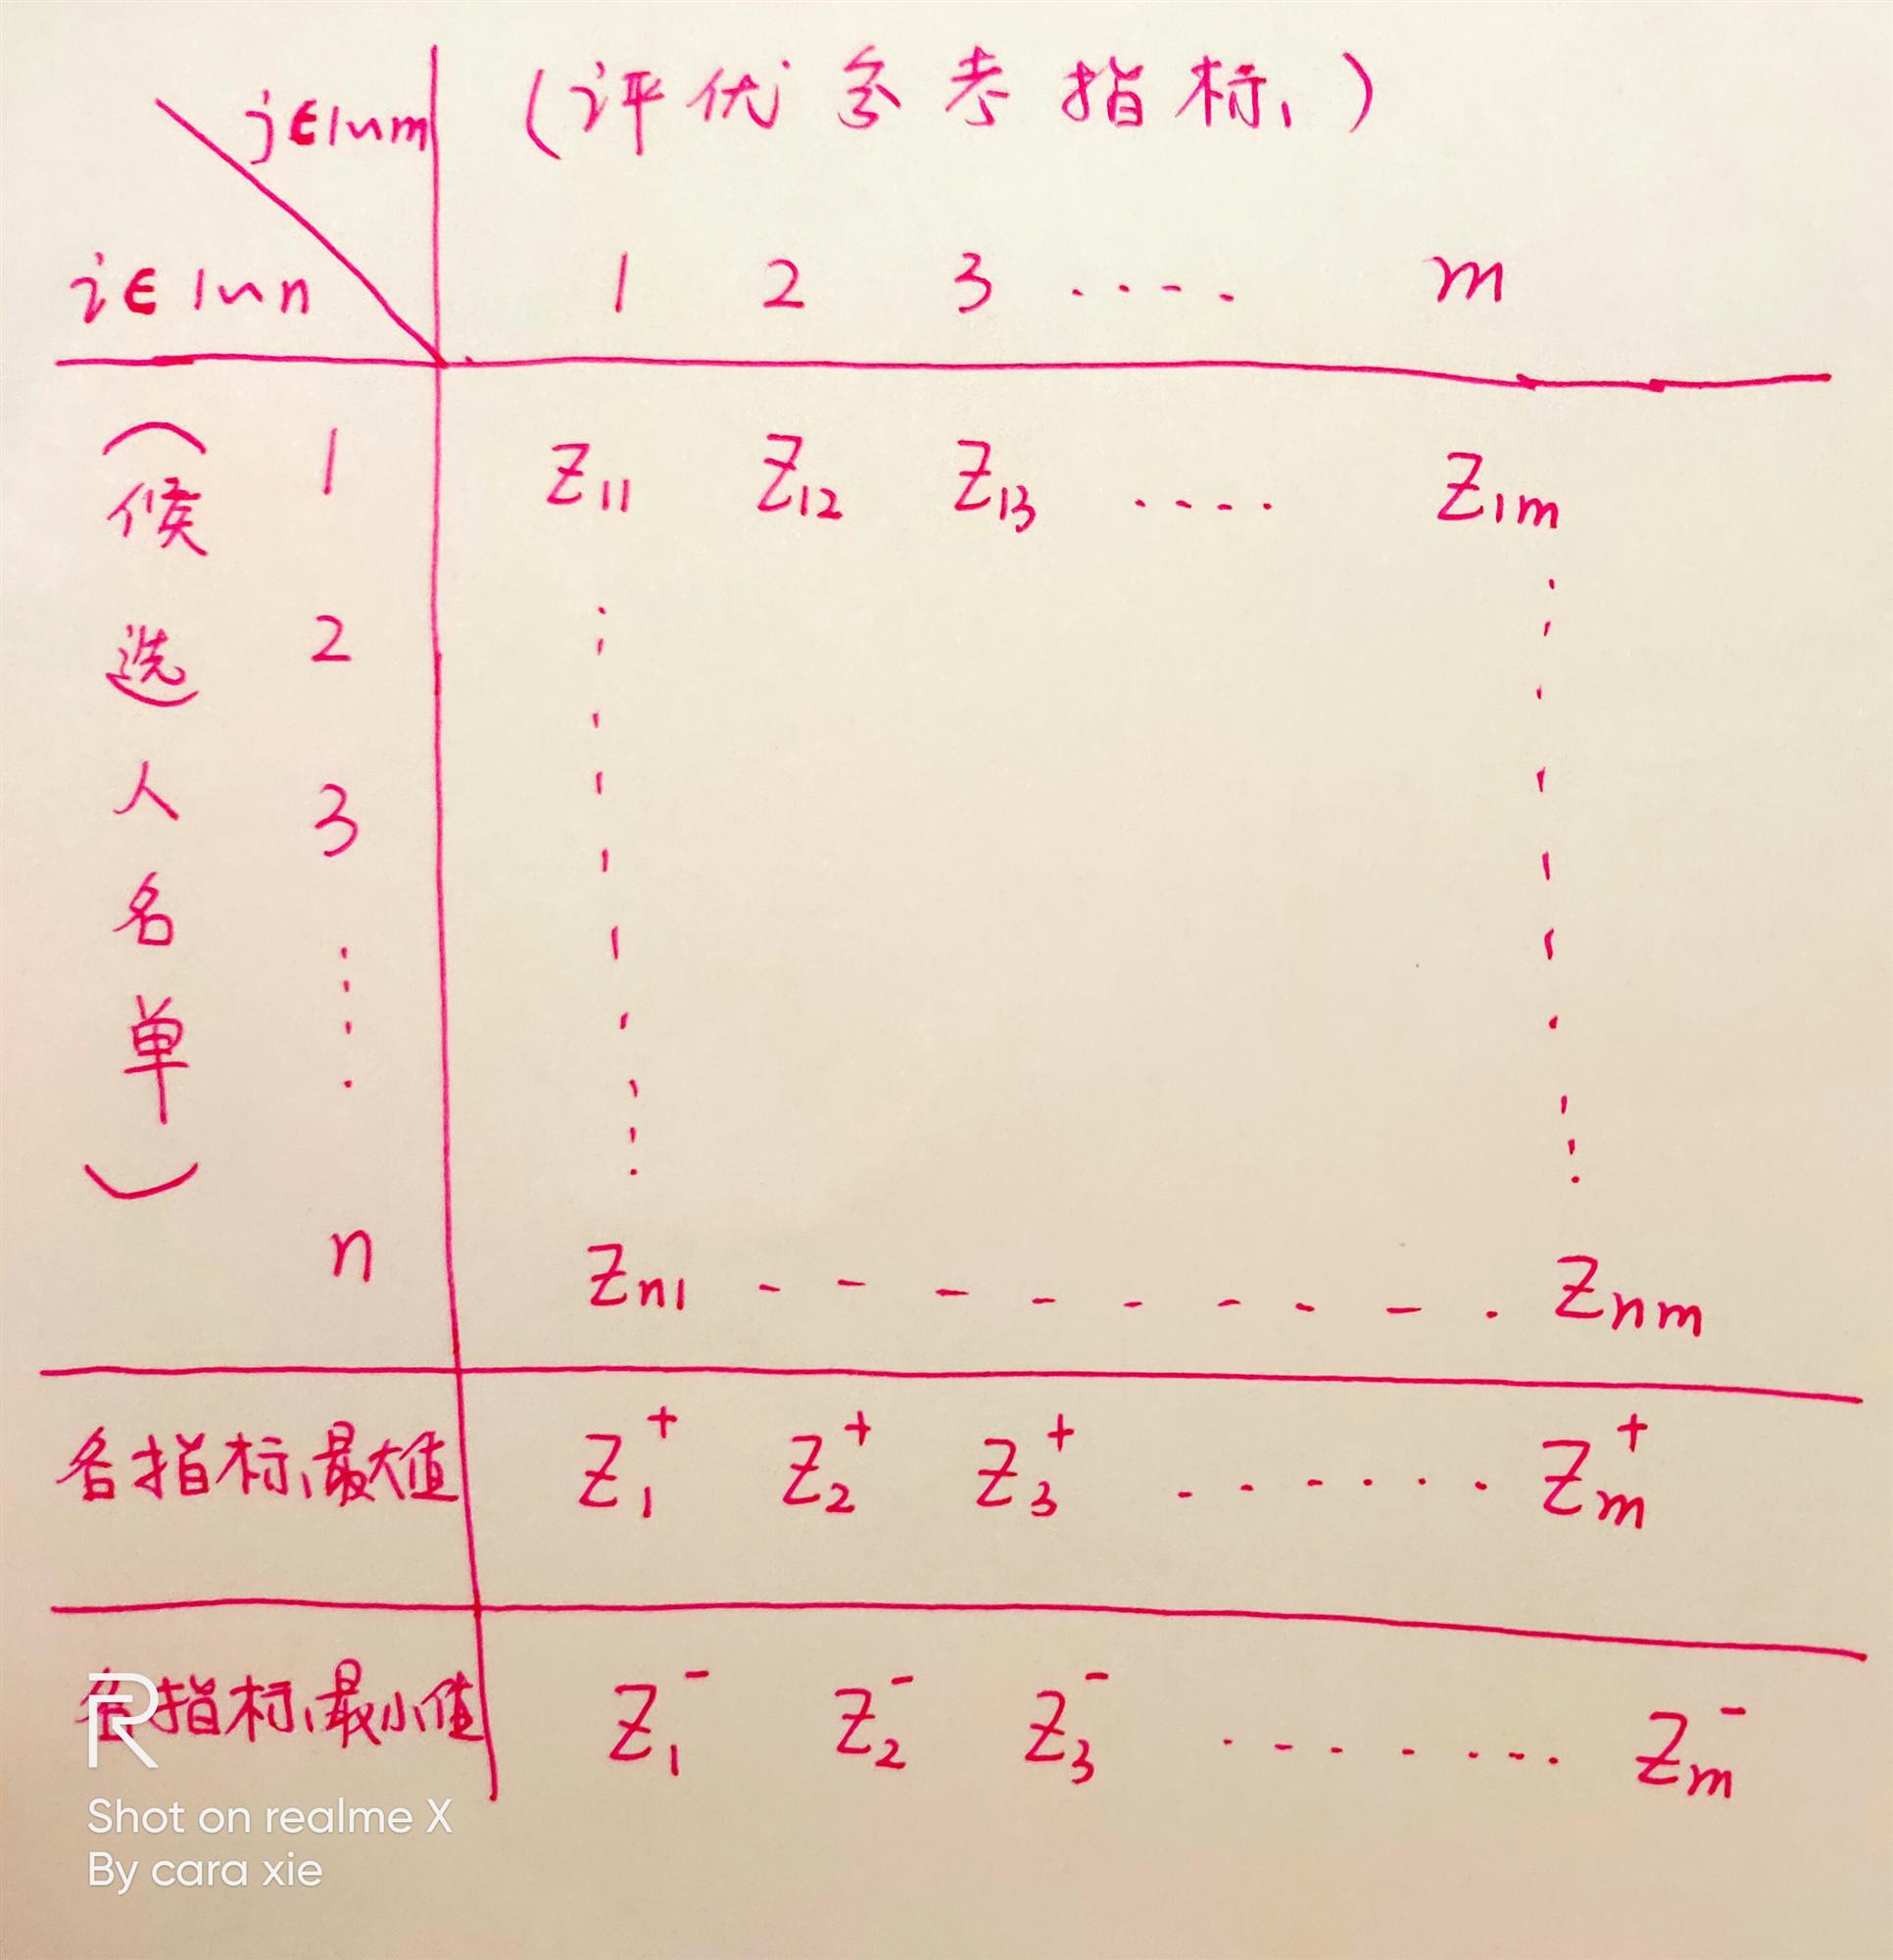 j∈1~m (评优参考指标)
i∈1~n 1 2 3 .... m
(候选人名单)
1 Z11 Z12 Z13 .... Z1m
2
3
n Zn1 - - - - - - - - . Znm
各指标最大值 Z1+ Z2+ Z3+ ...... Zm+
各指标最小值 Z1- Z2- Z3- ....... Zm-
R
Shot on realme X
By cara xie